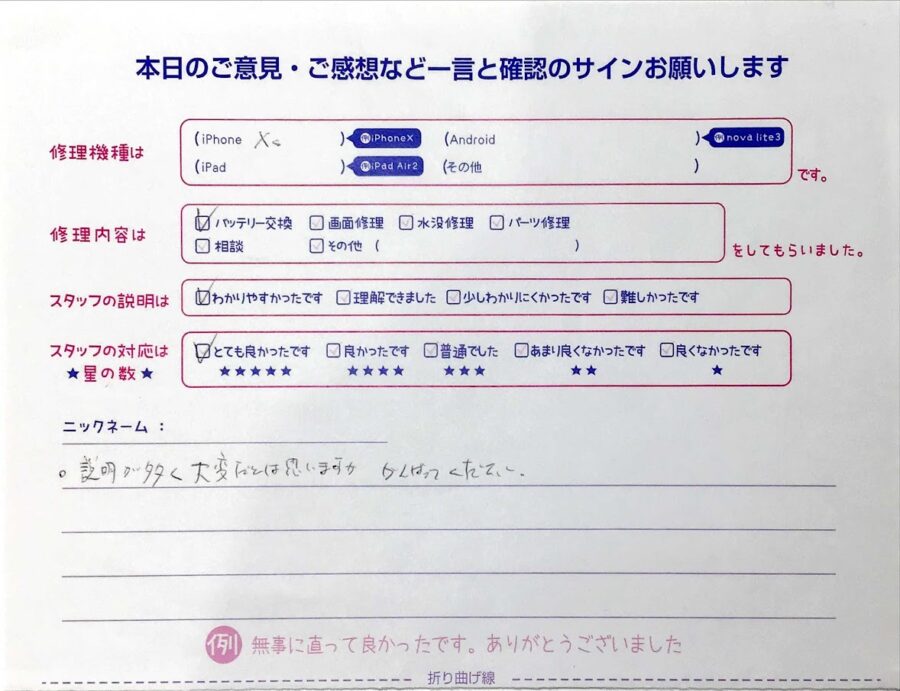 本日のご意見・ご感想など一言と確認のサインお願いします
修理機種は (iPhone Xs )例iPhoneX (Android )例nova lite3
(iPad )例iPad Air2 (その他 ) です。
修理内容は バッテリー交換 画面修理 水没修理 パーツ修理
相談 その他 ( ) をしてもらいました。
スタッフの説明は わかりやすかったです 理解できました 少しわかりにくかったです 難しかったです
スタッフの対応は とても良かったです 良かったです 普通でした あまり良くなかったです 良くなかったです
★星の数★ ★★★★★ ★★★★ ★★★ ★★ ★
ニックネーム :
。説明が多く大変だとは思いますが がんばってください。
例 無事に直って良かったです。ありがとうございました
折り曲げ線